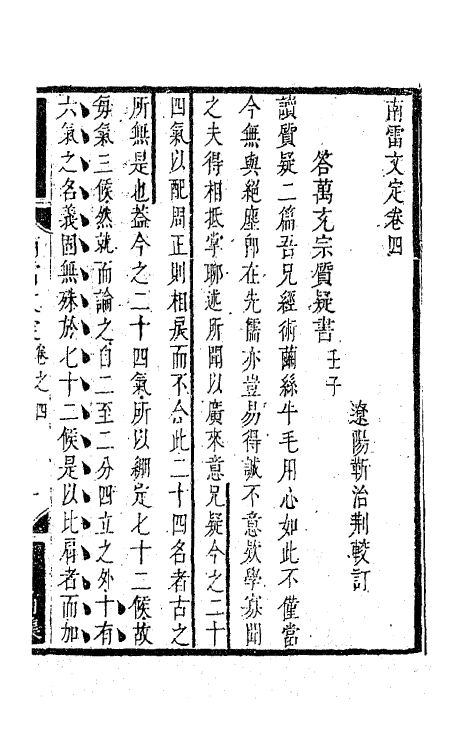 南雷文定卷四
遼陽靳治荆較訂
答萬充宗質疑書壬子
讀質疑二篇吾兄經術繭絲牛毛用心如此不僅當
今無與絕塵卽在先儒亦豈易得誠不意欵學寡聞
之夫得相抵掌聊述所聞以廣來意兄疑今之二十
四氣以配周正則相戾而不合此二十四名者古之
所無是也葢今之二十四氣所以綱定七十二候故
每氣三候然就而論之自二至二分四立之外十有
六氣之名義固無殊於七十二候是以比肩者而加
卷之四
一